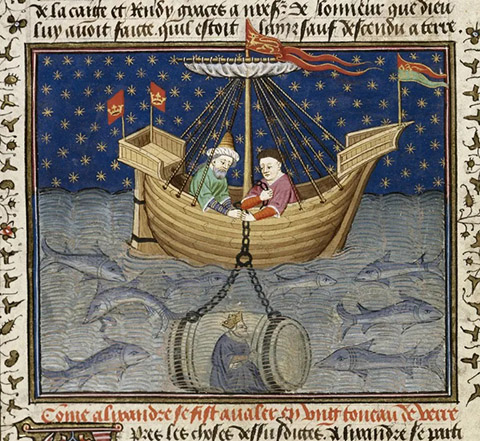 de la caige et Rendy graces a De lonneur que dieu
luy avoit faicte quil estoit sauf descendu a terre.
Come alixandre se fist avaler en ung tonneau de verre
Pres les choses dessusdictes Alixandre se parti